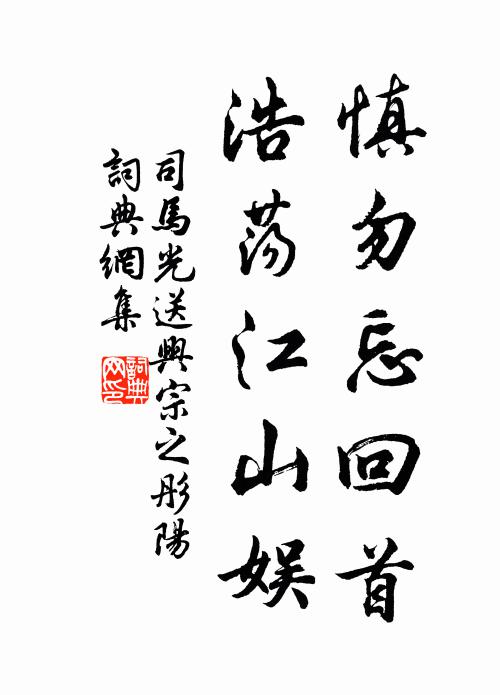 慎勿忘回首
浩蕩江山娛
司馬光送興宗之彤陽
詞典網集
詞典
网印